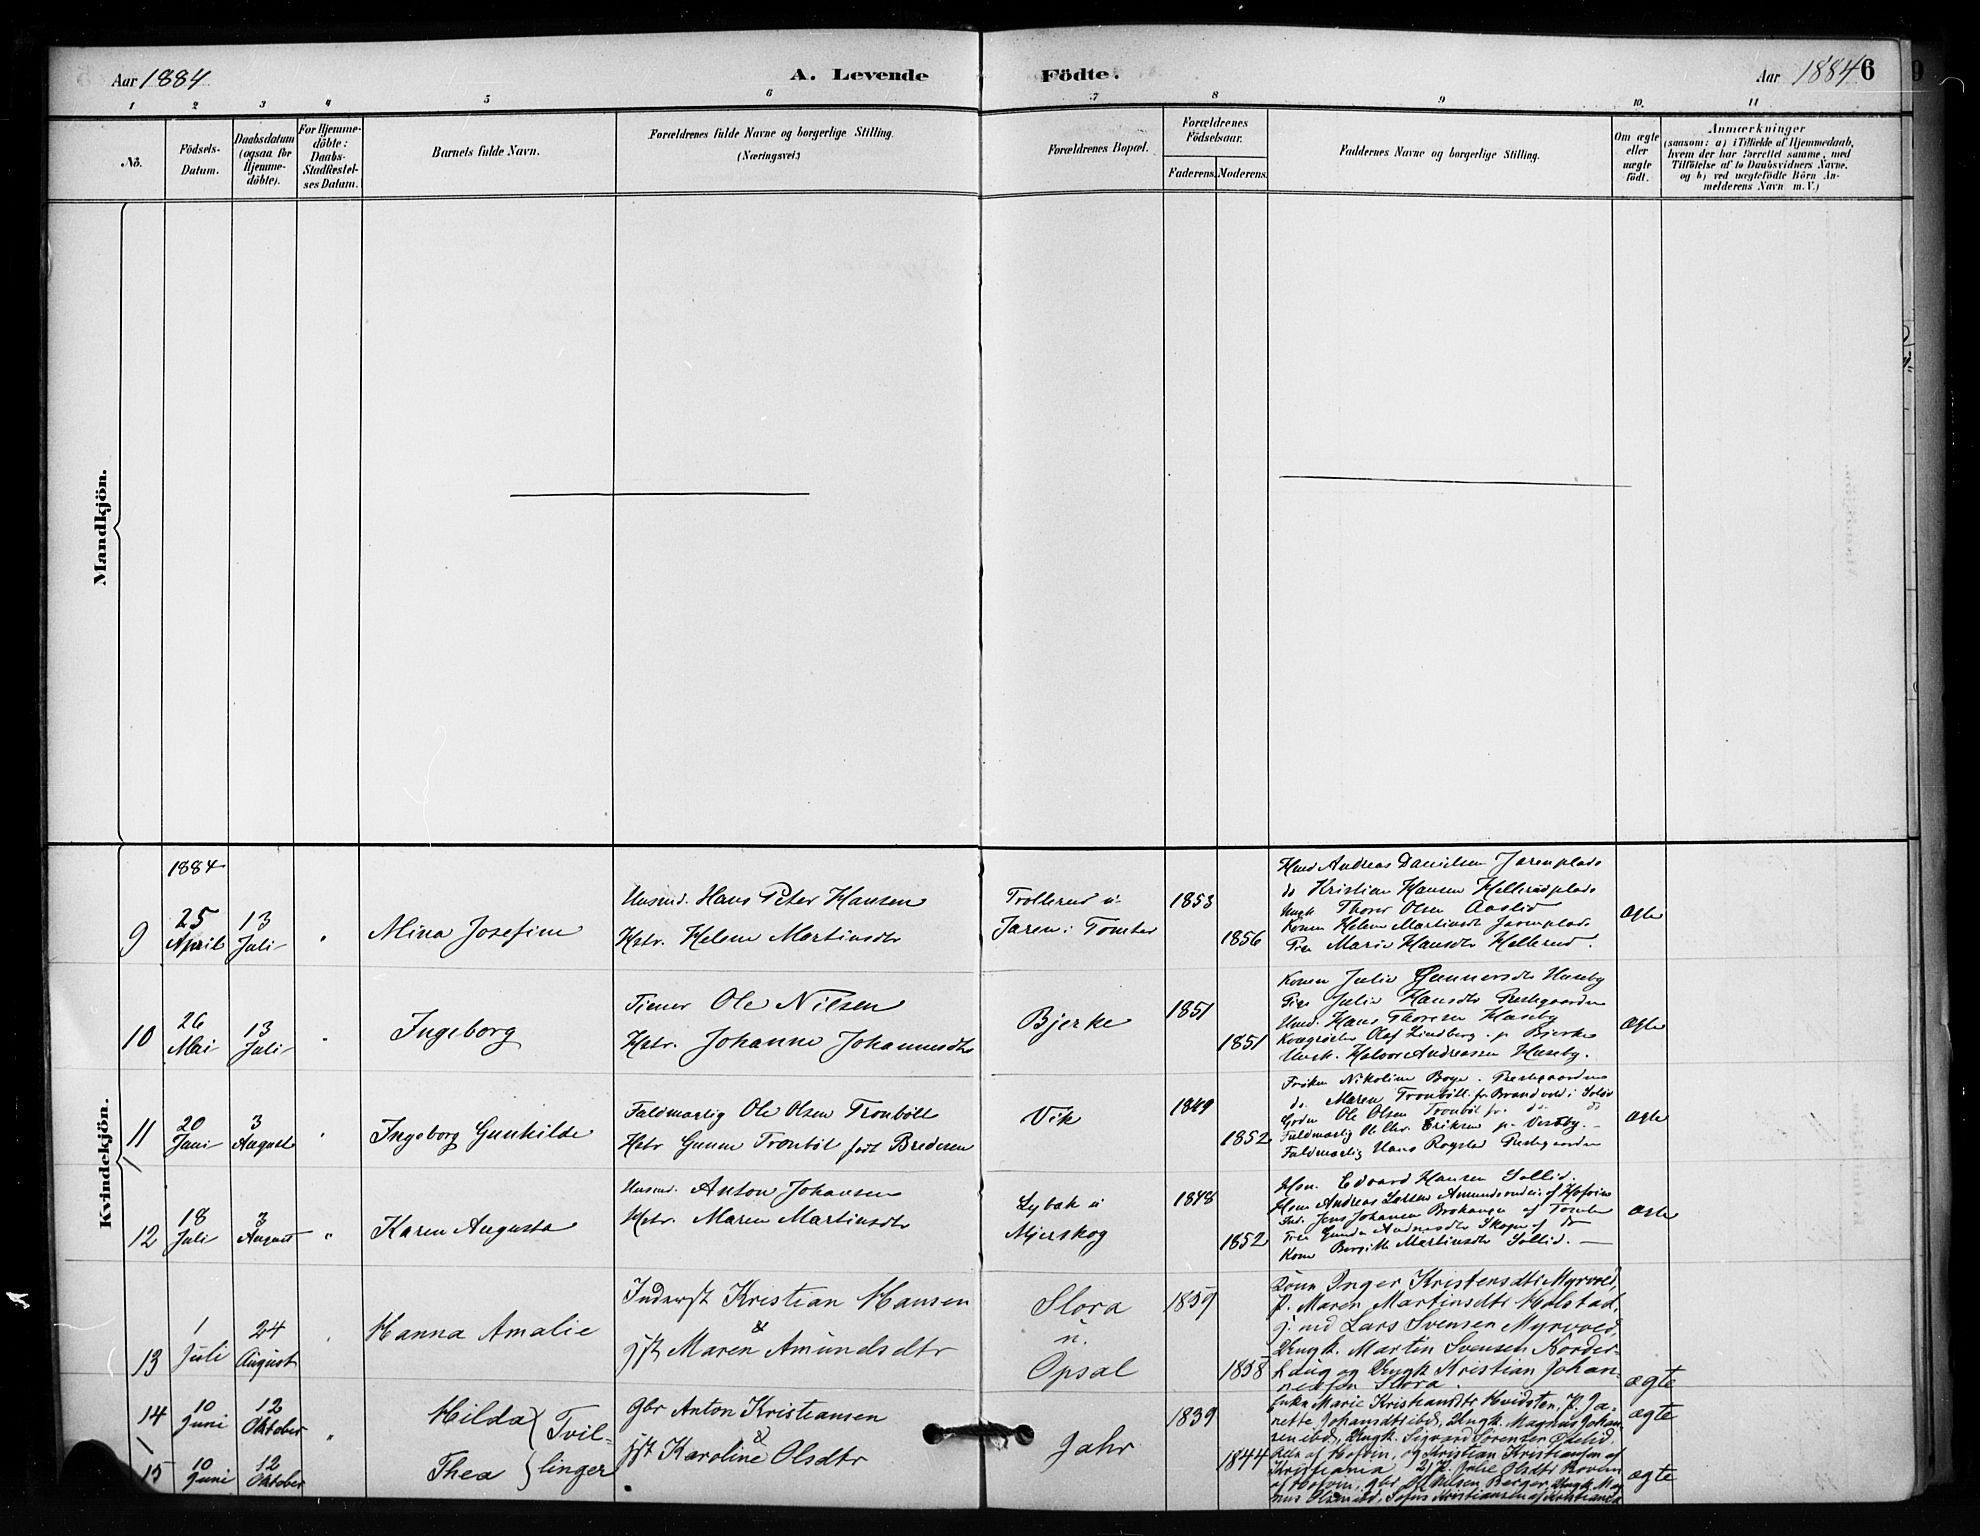 Aar 1884
A. Levende Födte.
Aar 1884 6
1 2 3 4 5 6 7 8 9 10. 11
No.
Födsels-Datum.
Daabsdatum (ogsaa for Hjemmedöbte).
For Hjemmedöbte: Daabs-Stadfæstelses Datum.
Barnets fulde Navn.
Forældrenes fulde Navne og borgerlige Stilling.
(Næringsvei.)
Forældrenes Bopæl.
Forældrenes Födselsaar.
Faderens. Moderens.
Faddernes Navne og borgerlige Stilling.
Om ægte eller uægte födt.
Anmærkninger
(saasom: a) i Tilfælde af Hjemmedaab,
hvem der har forrettet samme, med
Tilföielse af to Daabsvidners Navne.
og b) ved uægtefödte Börn An-
melderens Navn m.V.)
Mandkjön.
Kvindekjön.
1884
9 25 April 13 Juli " Mina Josefine
Husmd. Hans Peter Hansen
Hstr. Helene Martinsdtr
Trollerud u.
Jaren i Tomter
1853
1856
Hmd Andreas Danielsen Jarenplads
do Kristian Hansen Hellerudplads
Ungk Thorer Olsen Aaslid
Konen Helene Martinsdtr Jarenplads
Pige Marie Hansdtr Hellerud.
ægte
10 26 Mai 13 Juli " Ingeborg
Tjener Ole Nilsen
Hstr. Johanne Johannesdtr
Bjerke
1851
1851
Konen Julie Gunnersdtr Huseby
Pige Julie Hansdtr Prestegaarden
Hmd. Hans Thoresen Huseby
Olaf Lindberg p. Bjerke
Ungk. Halvor Andreasen Huseby.
ægte
11 20 Juni 3 August " Ingeborg Gunhilde
Fuldmægtig Ole Olsen Tronböll
Hstr Gunne Tronböl födt Bredesen
Vik
1849
1852
Fröken Nikoline Boye. Prestegaarden
do. Maren Tronböll fr Brandvold i Solör
Ole Olsen Tronböl fr. do do
Fuldmægtig Ole Chr. Eriksen p. Vestby.
Fuldmægtig Hans Prestegaarden
ægte
12 18 Juli 3 August " Karen Augusta
Husmd. Anton Johansen
Hstr. Maren Martinsdtr
Lybæk u
Mjærskog
1848
1852
Hmd. Edvard Hansen Sollid.
Hmd Andreas Larsen Amundsrudei. af Hofvin
Jens Johansen af Tomter
Pige Gunda Andreasdtr Skogen af do
Kone Bergitte Martinsdtr Sollid.
ægte
13 1 Juli 24 August " Hanna Amalie
Inderst Kristian Hansen
&
jft Maren Amundsdtr
Slora
u.
Opsal
1859
1858
Kone Inger Kristensdtr Myrvold,
P. Maren Martinsdtr Holstad,
g. md Lars Svensen Myrvold,
Ungk. Martin Svensen Norder-
haug og Ungk Kristian Johan-
nessen Slora.
ægte
14 10 Juni 12 Oktober " Hilda } Tvil-
15 10 Juni 12 Oktober Thea } linger
Gbr Anton Kristiansen
&
jft Karoline Olsdtr
Jahr
1839
1844
Enke Marie Kristiansdtr Hvidsten, P. Ja-
nette Johansdtr ibd., Ungk. Magnus Johan-
sen ibd., Ungk. Sigvard Sörensen
af Hofvin, og Kristian Kristiansen af
Kristiania 2) P. Julie Olsdtr
af Hofvin, gbr Ol Nilsen Berger, Ungk. Mag-
nus Olsen ibd, Sofus Kristiansen af Kristiania
ægte
ægte